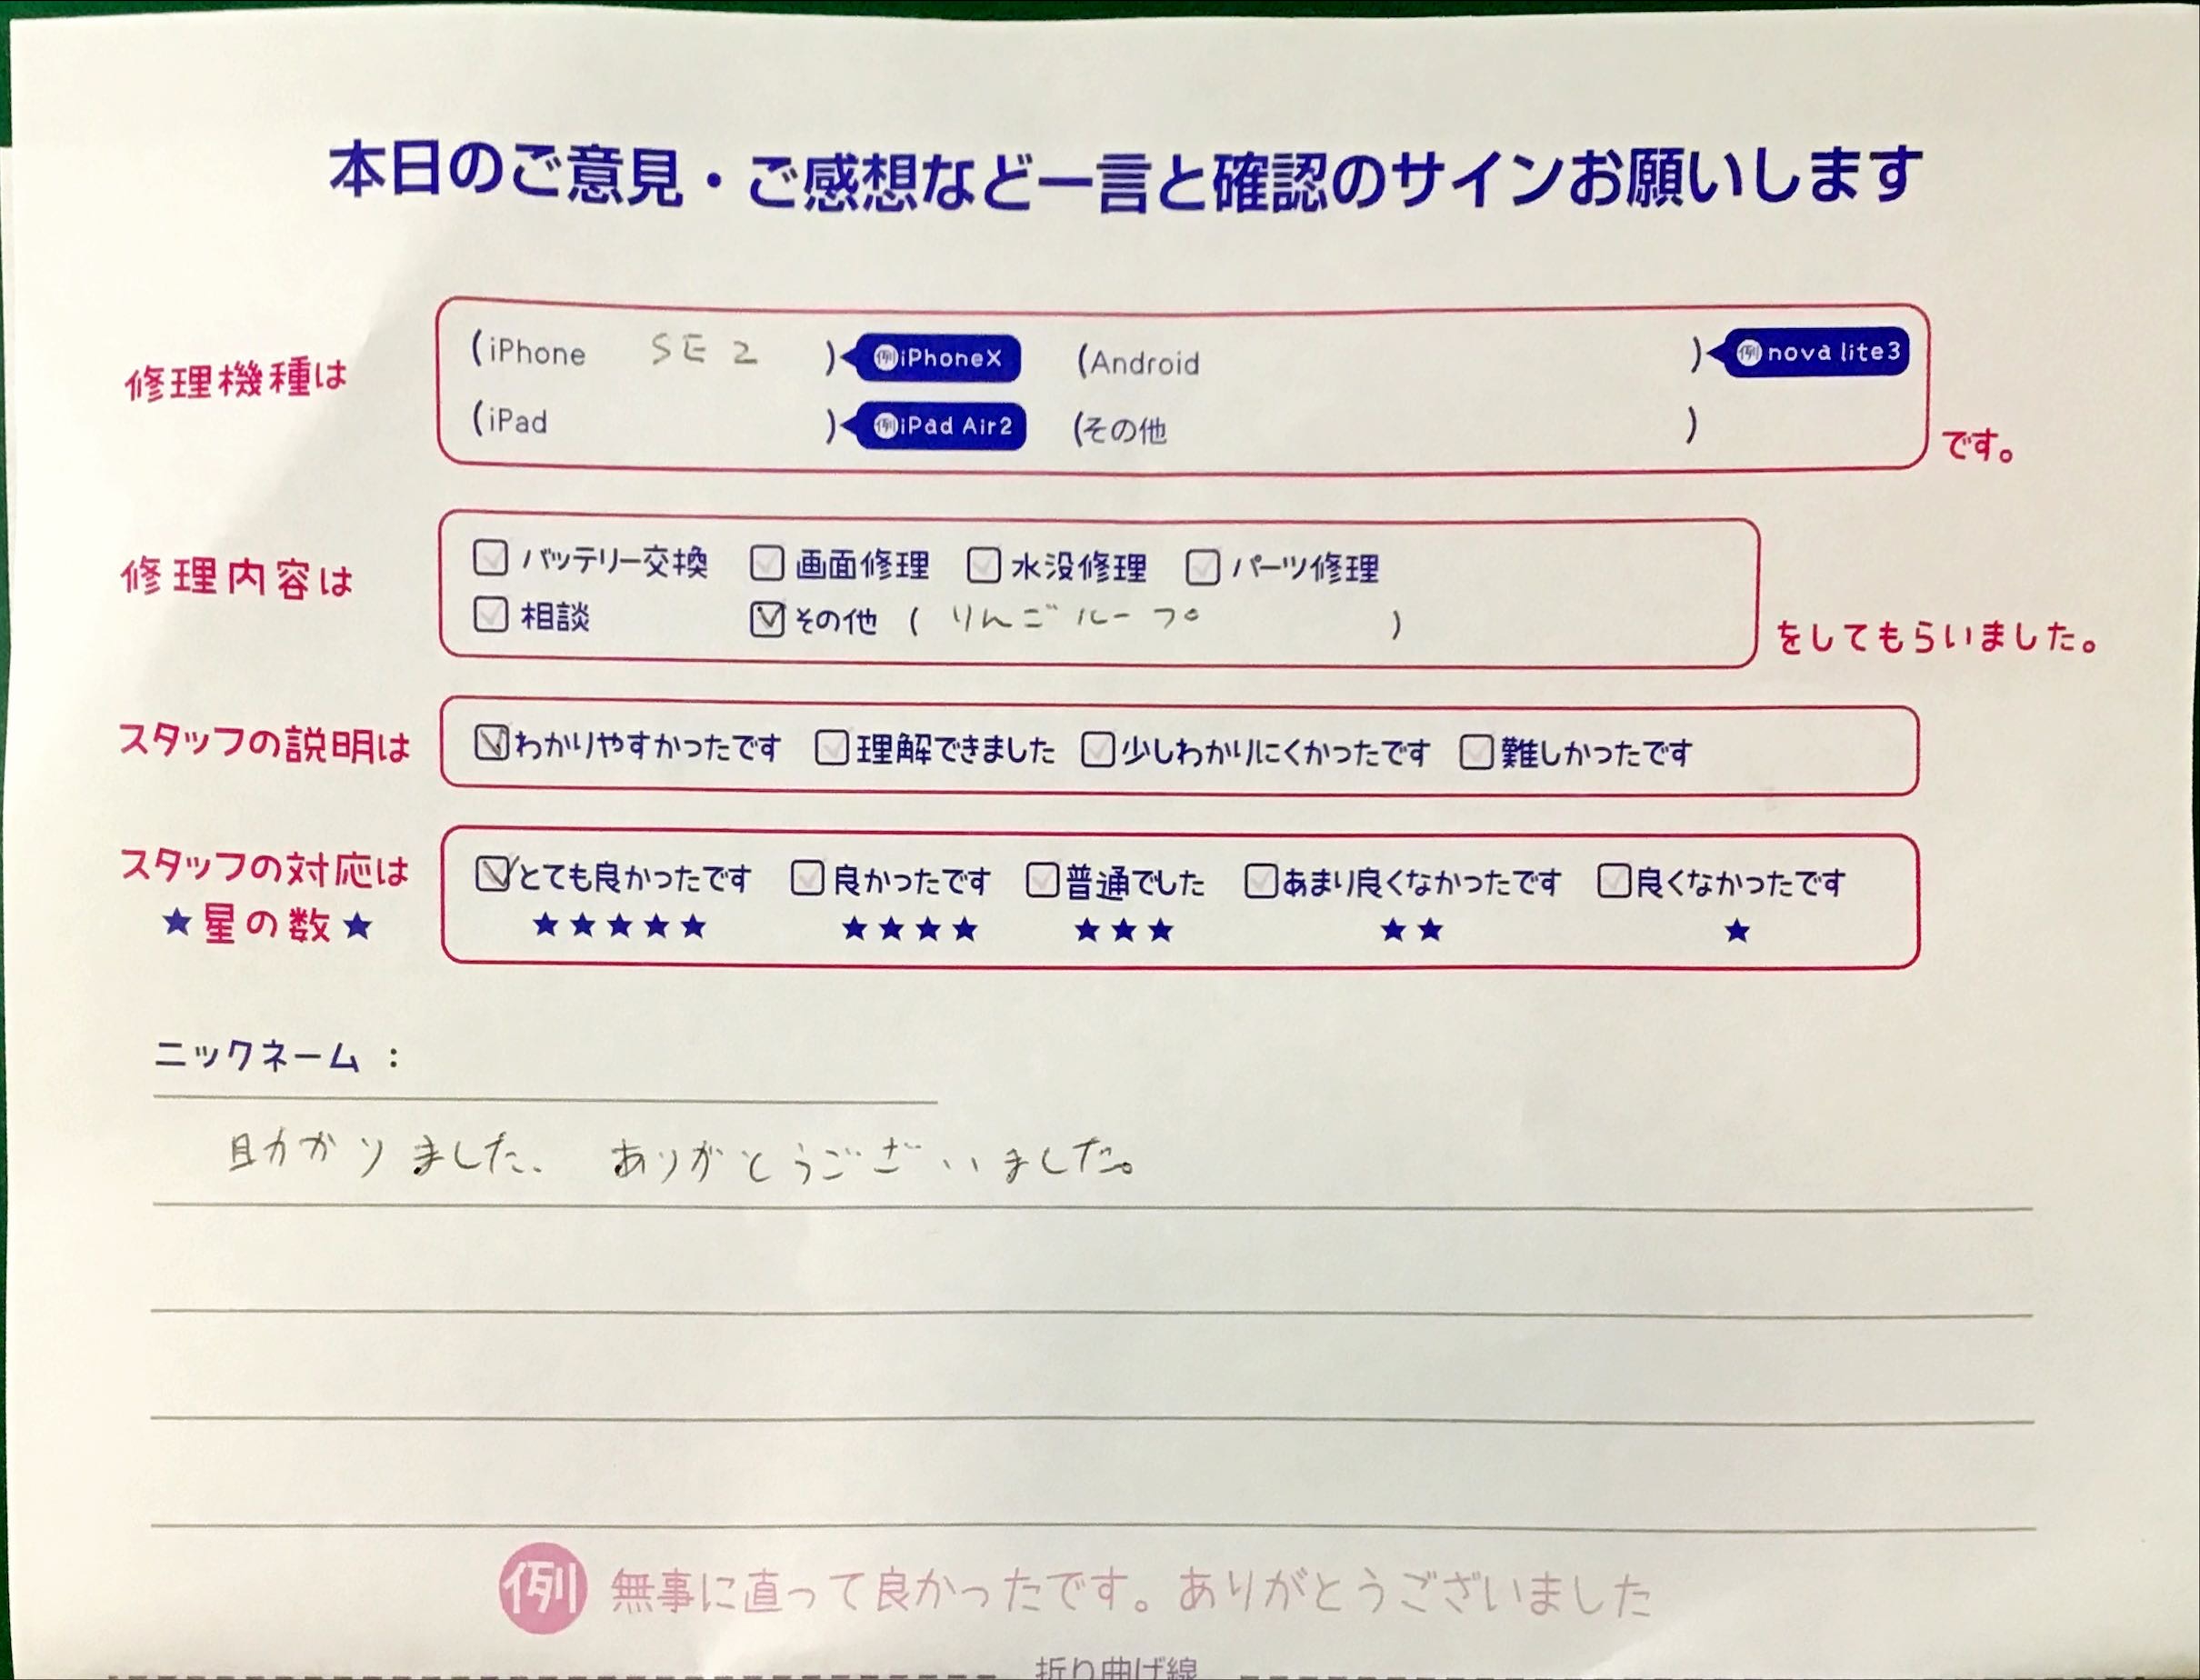 本日のご意見・ご感想など一言と確認のサインお願いします
修理機種は
(iPhone SE2 ) 例iPhoneX (Android ) 例nova lite3
(iPad ) 例iPad Air2 (その他 ) です。
修理内容は
バッテリー交換 画面修理 水没修理 パーツ修理
相談 その他 ( りんごループ ) をしてもらいました。
スタッフの説明は わかりやすかったです 理解できました 少しわかりにくかったです 難しかったです
スタッフの対応は とても良かったです 良かったです 普通でした あまり良くなかったです 良くなかったです
★星の数★ ★★★★★ ★★★★ ★★★ ★★ ★
ニックネーム :
助かりました、ありがとうございました。
例 無事に直って良かったです。ありがとうございました
折り曲げ線